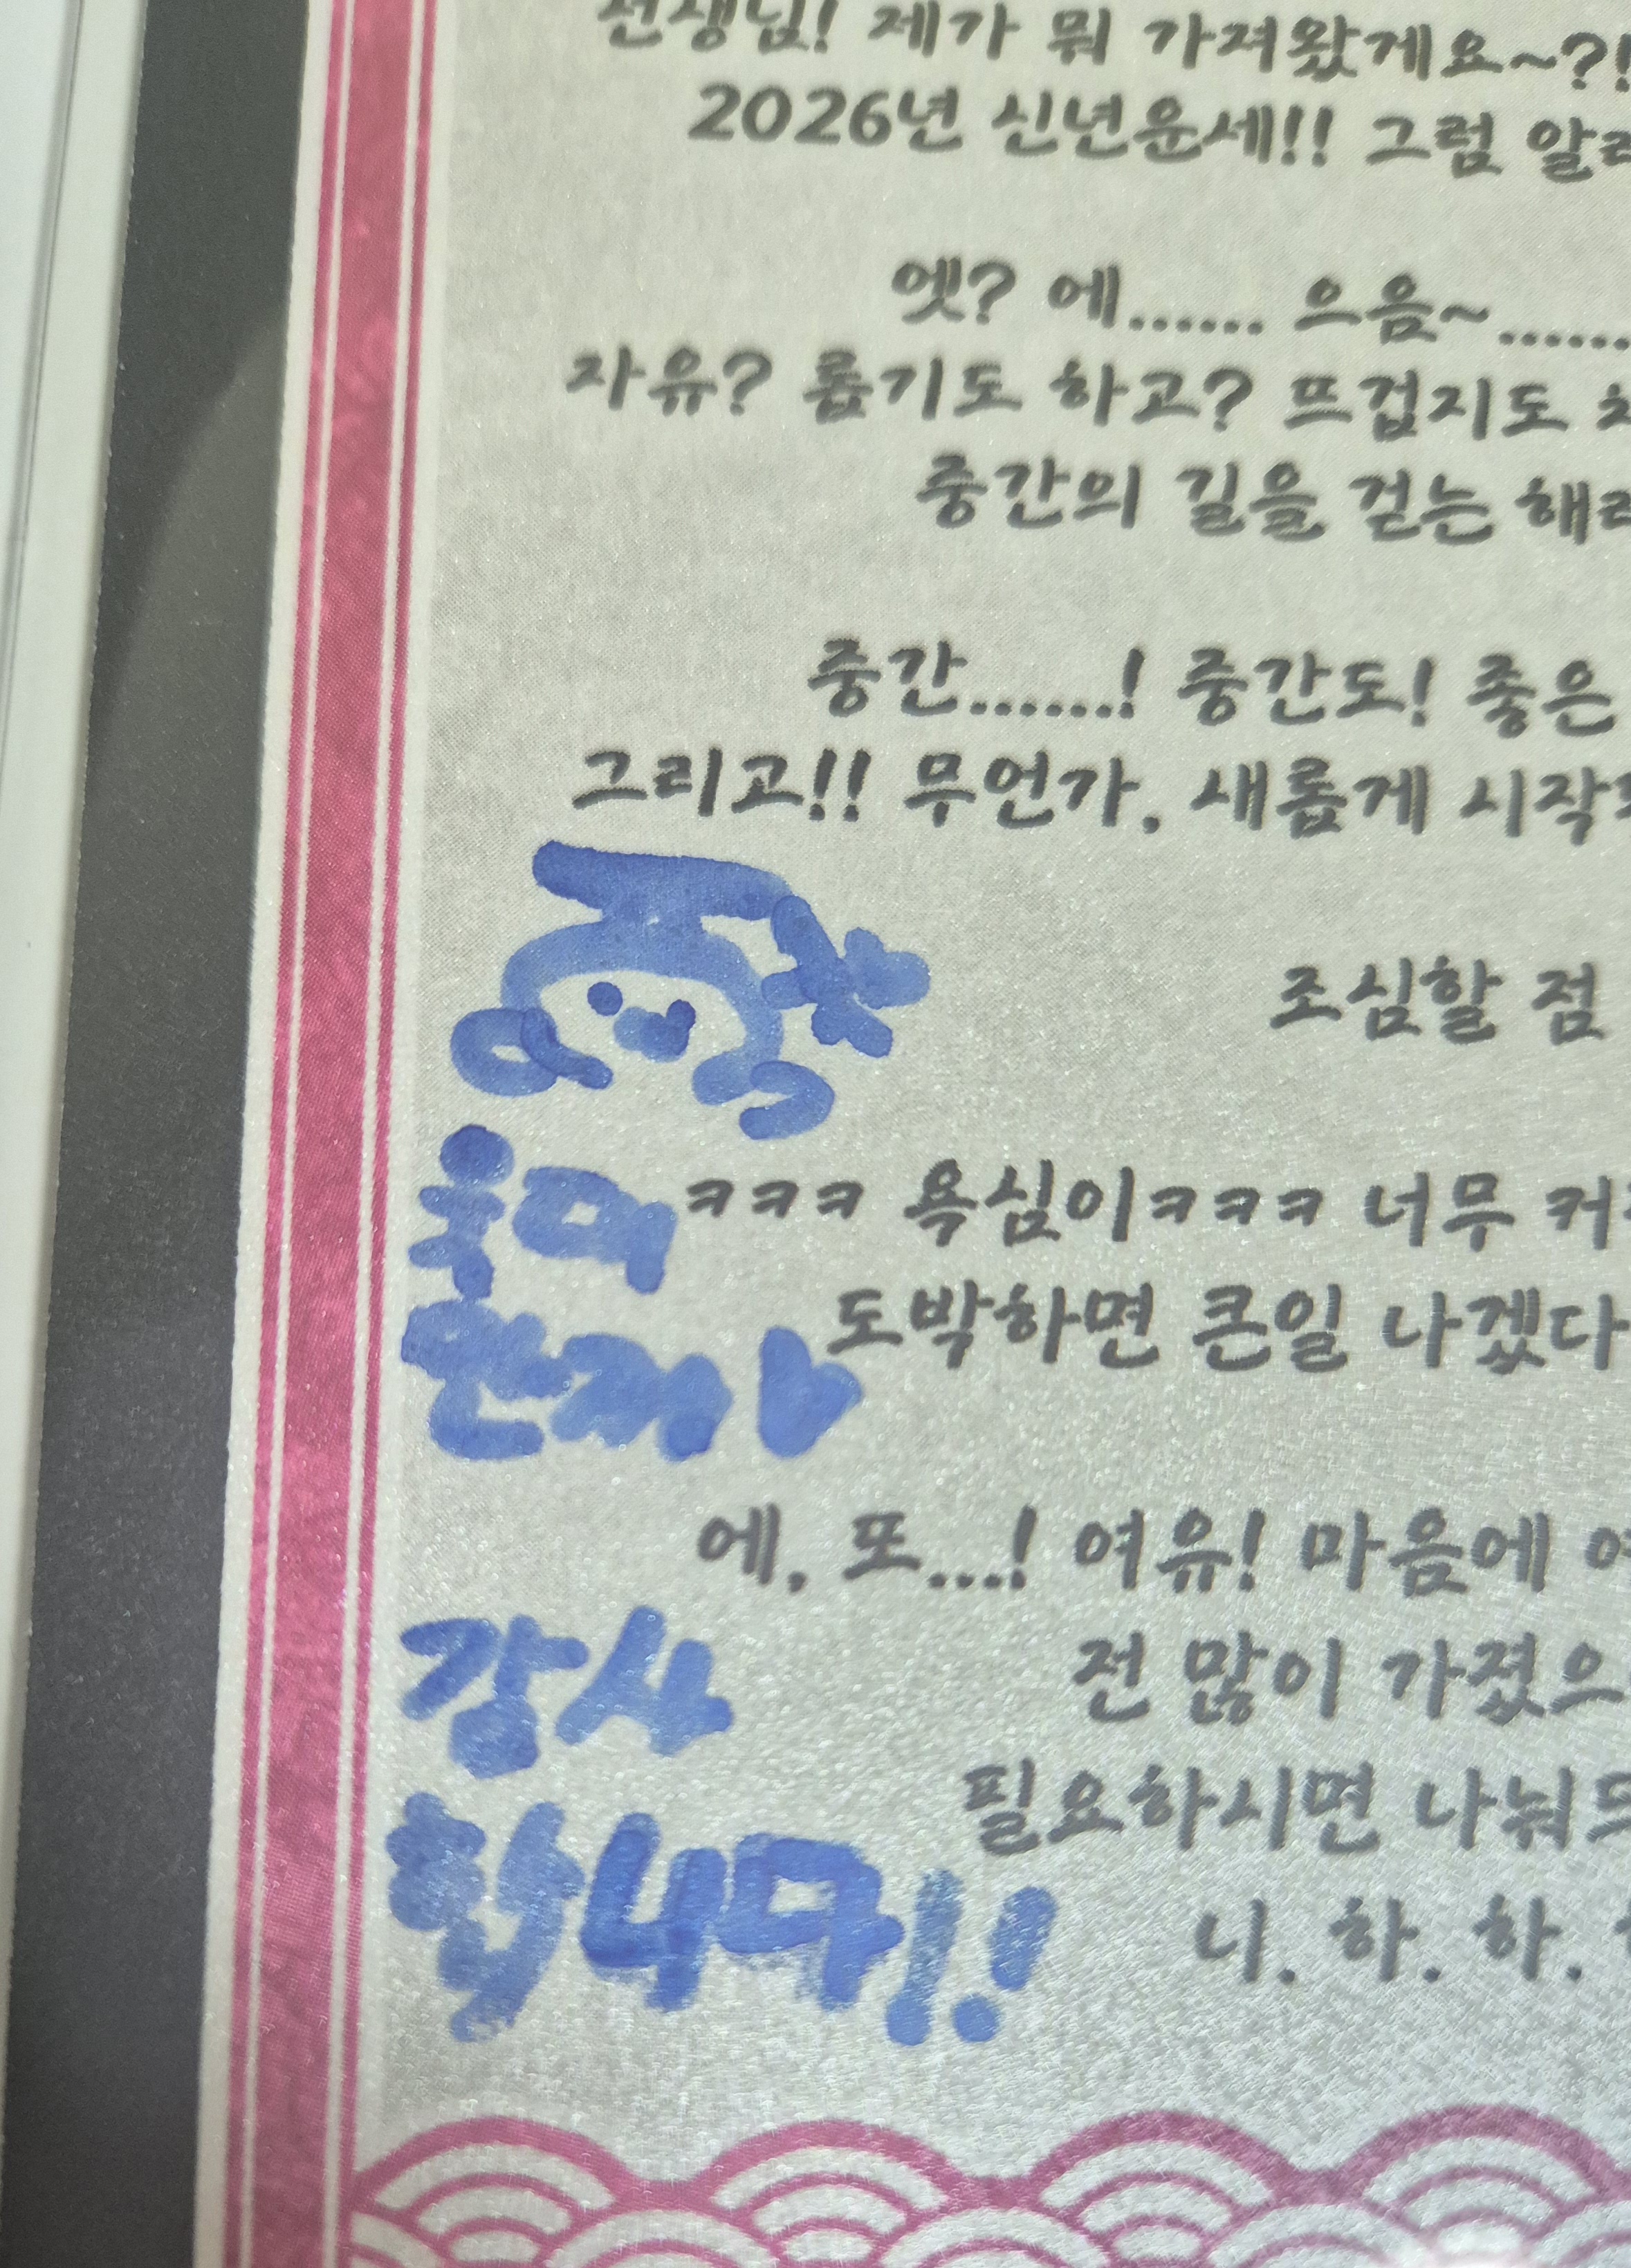 선생님! 제가 뭐 가져왔게요~?!
2026년 신년운세!! 그럼 알려
엣? 에...... 으음~......
자유? 롭기도 하고? 뜨겁지도
중간의 길을 걷는 해라
중간......! 중간도! 좋은
그리고!! 무언가, 새롭게 시작
조심할 점
ㅋㅋㅋ 욕심이ㅋㅋㅋ 너무 커
도박하면 큰일 나겠다
에, 또...! 여유! 마음에 여
전 많이 가졌으
필요하시면 나눠드
니. 하. 하.
감사
합니다!!